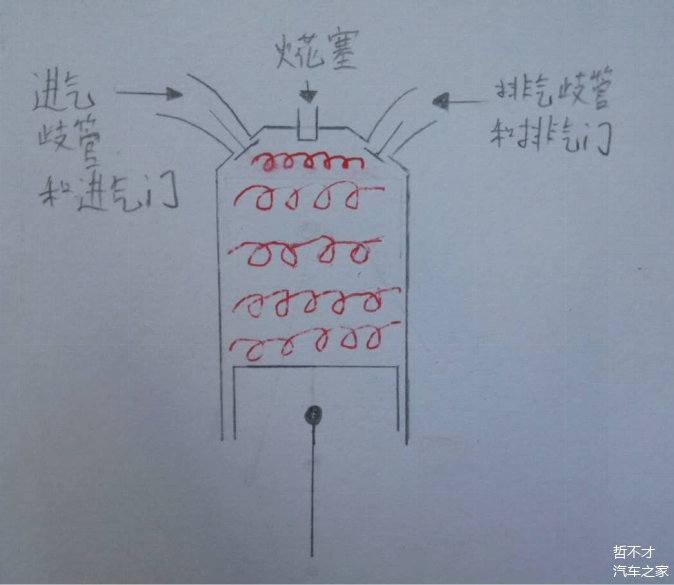 火花塞
进气
歧管
和进气门
排气歧管
和排气门
哲不才
汽车之家